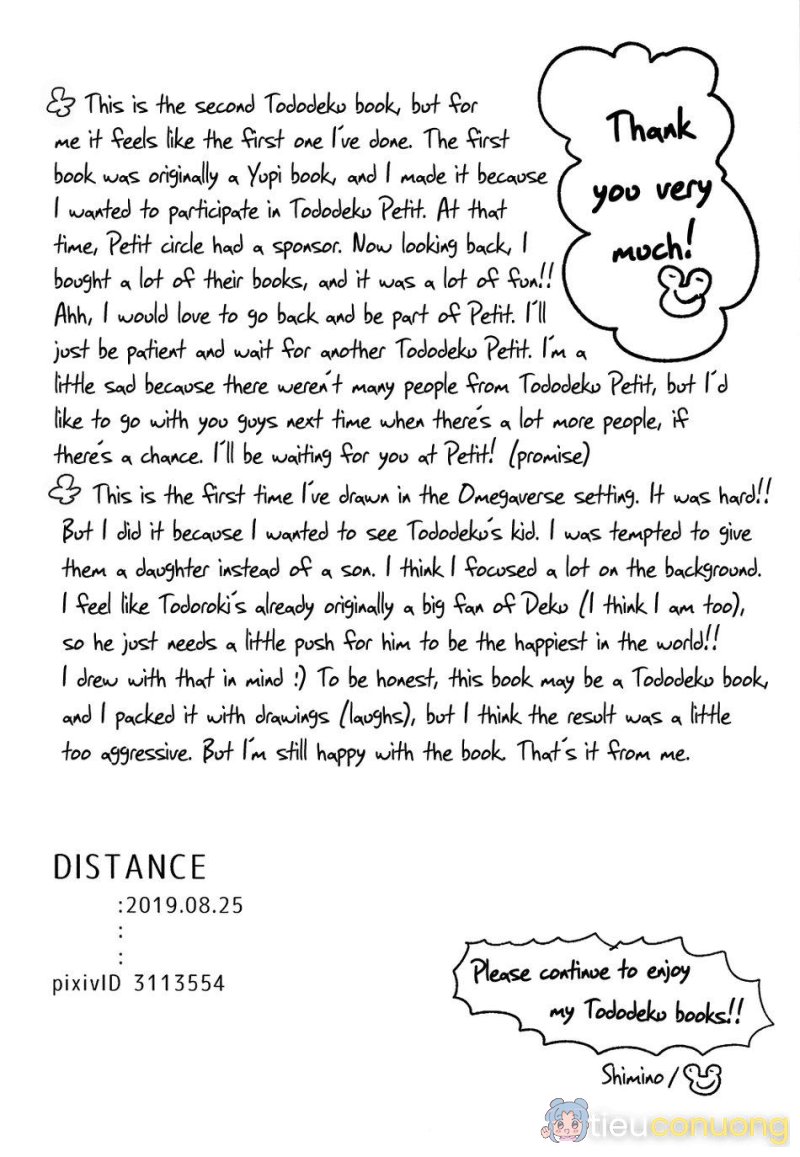 This is the second Tododeku book, but for
me it feels like the first one I've done. The first
book was originally a Yupi book, and I made it because
I wanted to participate in Tododeku Petit. At that
time, Petit circle had a sponsor. Now looking back, I
bought a lot of their books, and it was a lot of fun!!
Ahh, I would love to go back and be part of Petit. I'll
just be patient and wait for another Tododeku Petit. I'm a
little sad because there weren't many people from Tododeku Petit, but I'd
like to go with you guys next time when there's a lot more people, if
there's a chance. I'll be waiting for you at Petit! (promise)
Thank
you very
much!
This is the first time I've drawn in the Omegaverse setting. It was hard!!
But I did it because I wanted to see Tododeku's kid. I was tempted to give
them a daughter instead of a son. I think I focused a lot on the background.
I feel like Todoroki's already originally a big fan of Deku (I think I am too),
so he just needs a little push for him to be the happiest in the world!!
I drew with that in mind :) To be honest, this book may be a Tododeku book,
and I packed it with drawings (laughs), but I think the result was a little
too aggressive. But I'm still happy with the book. That's it from me.
DISTANCE
:2019.08.25
:
:
pixivID 3113554
Please continue to enjoy
my Tododeku books!!
Shimino /
tieuconuong